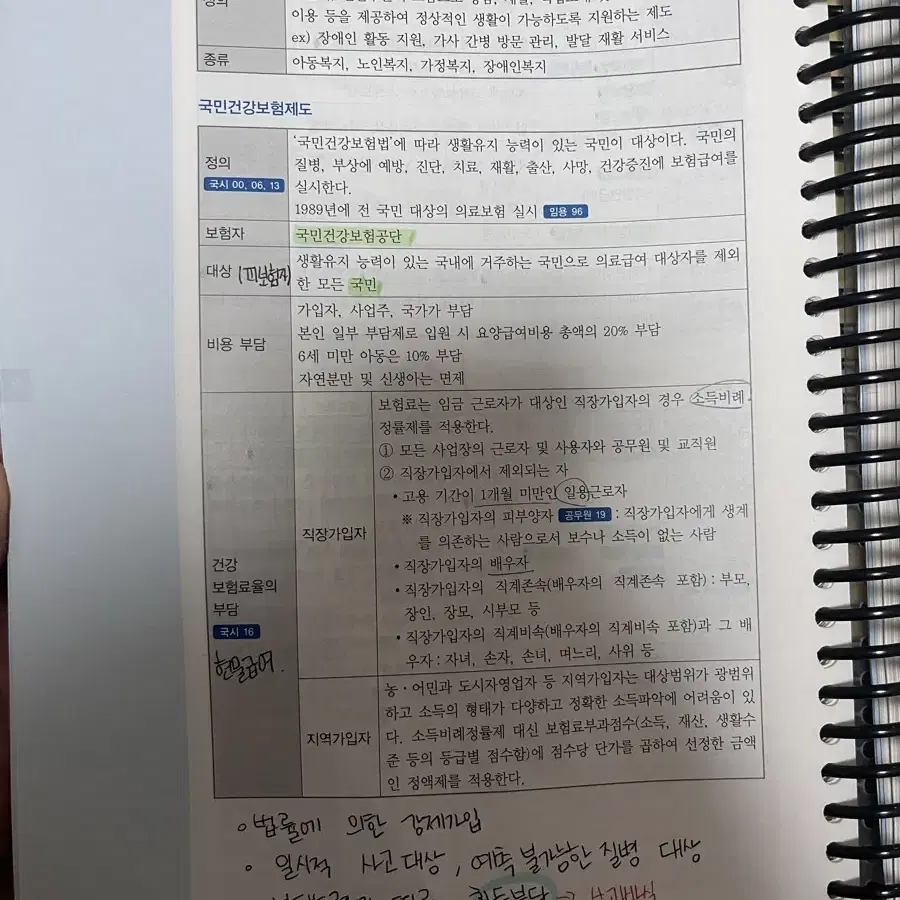 정의
이용 등을 제공하여 정상적인 생활이 가능하도록 지원하는 제도
ex) 장애인 활동 지원, 가사 간병 방문 관리, 발달 재활 서비스
종류
아동복지, 노인복지, 가정복지, 장애인복지
국민건강보험제도
정의
국시 00, 06, 13
'국민건강보험법'에 따라 생활유지 능력이 있는 국민이 대상이다. 국민의
질병, 부상에 예방, 진단, 치료, 재활, 출산, 사망, 건강증진에 보험급여를
실시한다.
1989년에 전 국민 대상의 의료보험 실시 임용 96
보험자
국민건강보험공단
대상 (피보험자)
생활유지 능력이 있는 국내에 거주하는 국민으로 의료급여 대상자를 제외
한 모든 국민
비용 부담
가입자, 사업주, 국가가 부담
본인 일부 부담제로 입원 시 요양급여비용 총액의 20% 부담
6세 미만 아동은 10% 부담
자연분만 및 신생아는 면제
건강
보험료율의
부담
국시 16
현물급여.
직장가입자
보험료는 임금 근로자가 대상인 직장가입자의 경우 소득비례
정률제를 적용한다.
① 모든 사업장의 근로자 및 사용자와 공무원 및 교직원
② 직장가입자에서 제외되는 자
• 고용 기간이 1개월 미만인 일용근로자
※ 직장가입자의 피부양자 공무원 19 : 직장가입자에게 생계
를 의존하는 사람으로서 보수나 소득이 없는 사람
• 직장가입자의 배우자
• 직장가입자의 직계존속(배우자의 직계존속 포함) : 부모,
장인, 장모, 시부모 등
• 직장가입자의 직계비속(배우자의 직계비속 포함)과 그 배
우자 : 자녀, 손자, 손녀, 며느리, 사위 등
지역가입자
농·어민과 도시자영업자 등 지역가입자는 대상범위가 광범위
하고 소득의 형태가 다양하고 정확한 소득파악에 어려움이 있
다. 소득비례정률제 대신 보험료부과점수(소득, 재산, 생활수
준 등의 등급별 점수함)에 점수당 단가를 곱하여 선정한 금액
인 정액제를 적용한다.
• 법률에 의한 강제가입
• 일시적 사고 대상, 예측 불가능한 질병 대상